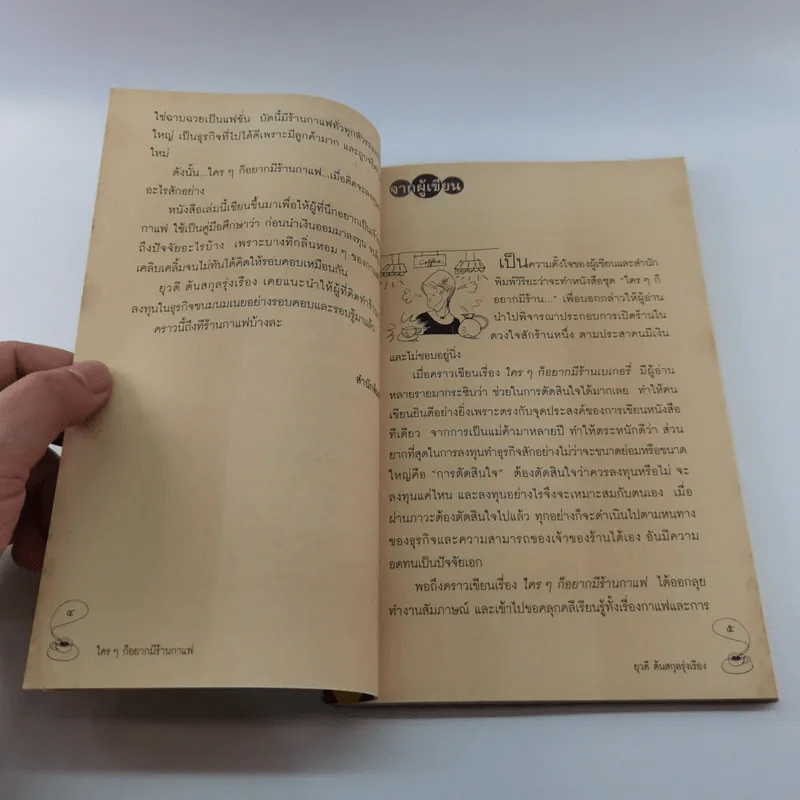 ใช่ฉาบฉวยเป็นแฟชั่น บัดนี้มีร้านกาแฟทั่วทุกหัวระแหง
ใหญ่ เป็นธุรกิจที่ไปได้ดีเพราะมีลูกค้ามาก และ
ใหม่
ดังนั้น...ใคร ๆ ก็อยากมีร้านกาแฟ...เมื่อคิดจะลงทุน
อะไรสักอย่าง
หนังสือเล่มนี้เขียนขึ้นมาเพื่อให้ผู้ที่นึกอยากเป็น
กาแฟ ใช้เป็นคู่มือศึกษาว่า ก่อนนำเงินออมมาลงทุน
ถึงปัจจัยอะไรบ้าง เพราะบางทีกลิ่นหอม ๆ ของ
เคลิบเคลิ้มจนไม่ทันได้คิดให้รอบคอบเหมือนกัน
ยุวดี ตันสกุลรุ่งเรือง เคยแนะนำให้ผู้ที่คิดทำ
ลงทุนในธุรกิจขนมนมเนยอย่างรอบคอบและรอบรู้มาแล้ว
คราวนี้ถึงทีร้านกาแฟบ้างละ
๔
ใคร ๆ ก็อยากมีร้านกาแฟ
จากผู้เขียน
Coffee
เป็นความตั้งใจของผู้เขียนและสำนัก
พิมพ์พิริยะว่าจะทำหนังสือชุด "ใคร ๆ ก็
อยากมีร้าน..." เพื่อบอกกล่าวให้ผู้อ่าน
นำไปพิจารณาประกอบการเปิดร้านใน
ดวงใจสักร้านหนึ่ง ตามประสาคนมีเงิน
และไม่ชอบอยู่นิ่ง
เมื่อคราวเขียนเรื่อง ใคร ๆ ก็อยากมีร้านเบเกอรี่ มีผู้อ่าน
หลายรายมากระซิบว่า ช่วยในการตัดสินใจได้มากเลย ทำให้คน
เขียนยินดีอย่างยิ่งเพราะตรงกับจุดประสงค์ของการเขียนหนังสือ
ทีเดียว จากการเป็นแม่ค้ามาหลายปี ทำให้ตระหนักดีว่า ส่วน
ยากที่สุดในการลงทุนทำธุรกิจสักอย่างไม่ว่าจะขนาดย่อมหรือขนาด
ใหญ่คือ "การตัดสินใจ" ต้องตัดสินใจว่าควรลงทุนหรือไม่ จะ
ลงทุนแค่ไหน และลงทุนอย่างไรจึงจะเหมาะสมกับตนเอง เมื่อ
ผ่านภาวะต้องตัดสินใจไปแล้ว ทุกอย่างก็จะดำเนินไปตามหนทาง
ของธุรกิจและความสามารถของเจ้าของร้านได้เอง อันมีความ
อดทนเป็นปัจจัยเอก
พอถึงคราวเขียนเรื่อง ใคร ๆ ก็อยากมีร้านกาแฟ ได้ออกลุย
ทำงานสัมภาษณ์ และเข้าไปขอคลุกคลีเรียนรู้ทั้งเรื่องกาแฟและการ
๕
ยุวดี ตันสกุลรุ่งเรือง